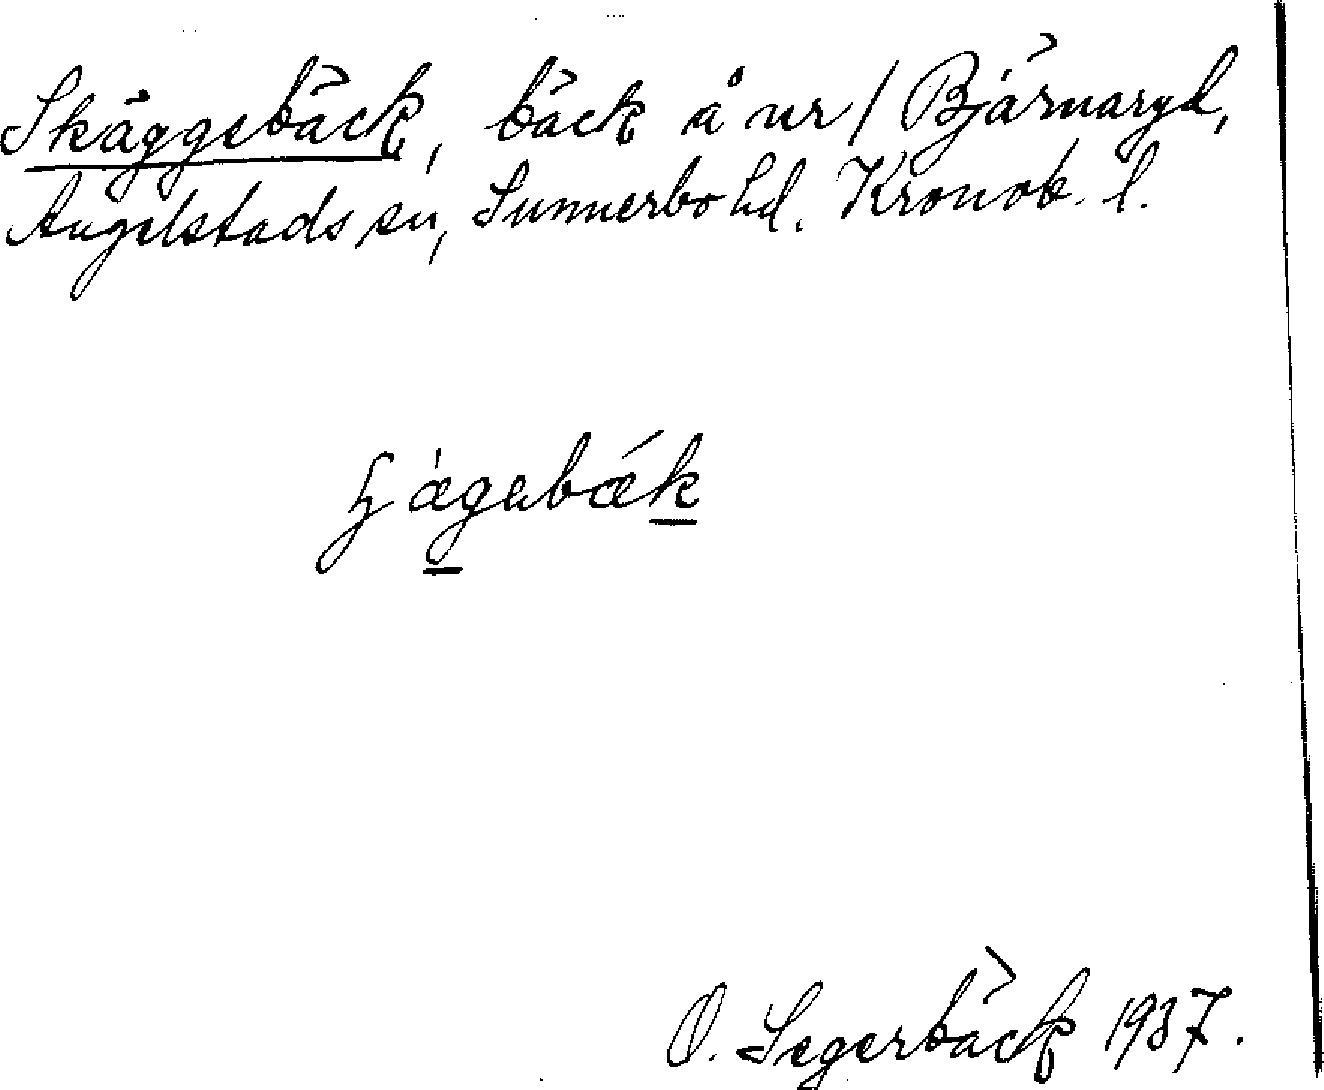 Skäggebäck, bäck å nr 1 Bjärnaryd,
Angelstads sn, Sunnerbo hd. Kronob. l.
ʃægabæk
O. Segerbäck 1937.